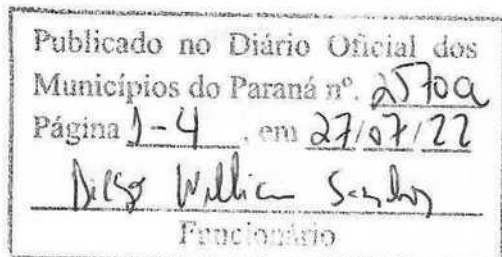 Publicado no Diário Oficial dos
Municípios do Paraná nº. 2570a
Página 1-4, em 27/07/22
Diego William
Funcionário